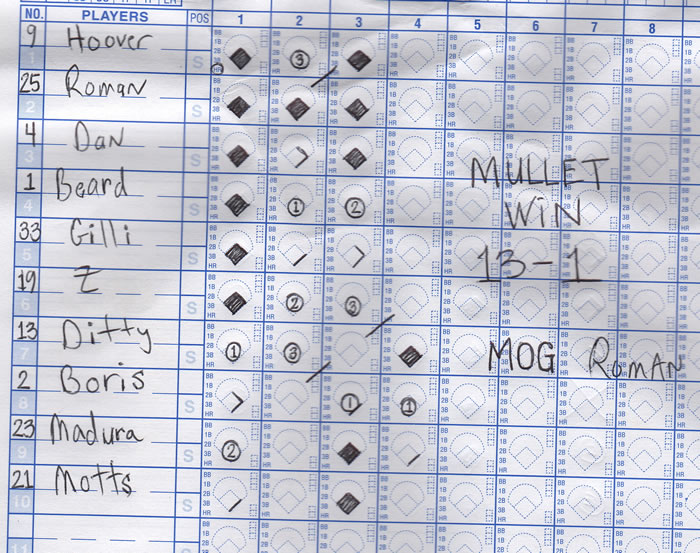 NO. PLAYERS POS 1 2 3 4 5 6 7 8
9 Hoover 1 3
25 Roman 2 S
4 Dan 3 S
MULLET
1 Beard 4 S 1 2
WIN
33 Gilli 5 S
13-1
19 Z 6 S 2 3
13 Ditty 7 S 1 3
MOG Roman
2 Boris 8 S 1 1
23 Madura 9 S 2
21 Motts 10 S
11